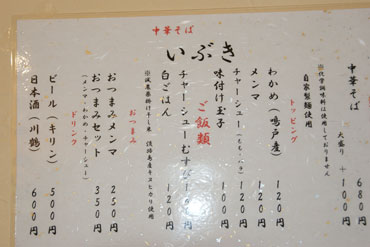 中華そば
いぶき
中華そば 680円
大盛り +100円
※化学調味料は使用しておりません
自家製麺使用
トッピング
わかめ(鳴戸産) 120円
メンマ 120円
チャーシュー 120円
味付け玉子 100円
ご飯類
チャーシューむすび
白ごはん 120円
※減農薬掛け干し米 淡路島産キヌヒカリ使用
おつまみ
おつまみメンマ 250円
おつまみセット 350円
(メンマ・わかめ・チャーシュー)
ドリンク
ビール(キリン) 500円
日本酒(川鶴) 600円